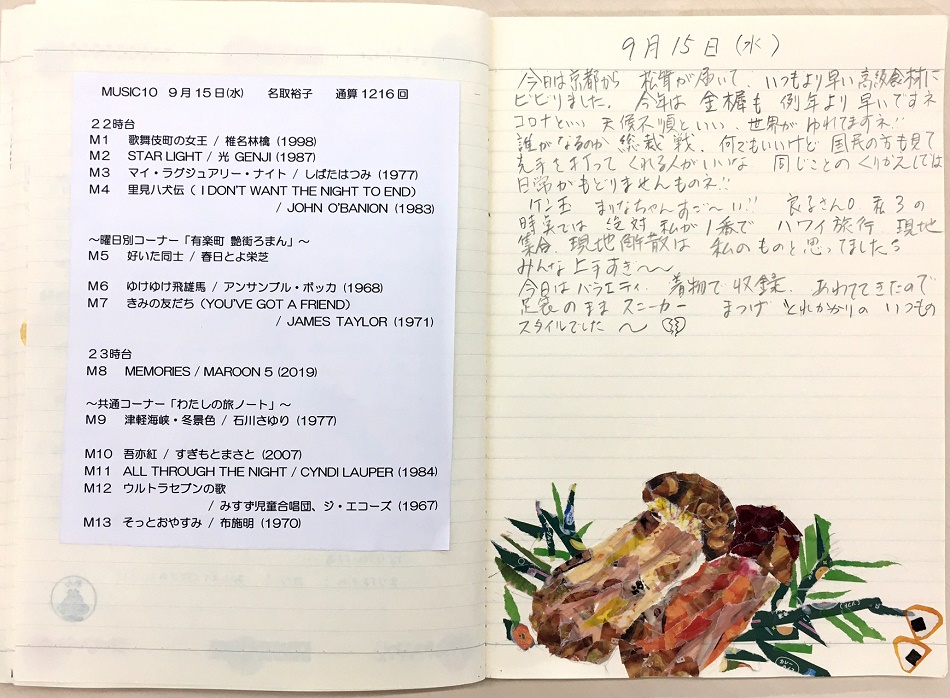 MUSIC10 9月15日(水) 名取裕子 通算1216回
22時台
M1 歌舞伎町の女王 / 椎名林檎 (1998)
M2 STAR LIGHT / 光 GENJI (1987)
M3 マイ・ラグジュアリー・ナイト / しばたはつみ (1977)
M4 里見八犬伝 ( I DON'T WANT THE NIGHT TO END)
/ JOHN O'BANION (1983)
～曜日別コーナー「有楽町 艶街ろまん」～
M5 好いた同士 / 春日とよ栄芝
M6 ゆけゆけ飛雄馬 / アンサンブル・ボッカ (1968)
M7 きみの友だち (YOU'VE GOT A FRIEND)
/ JAMES TAYLOR (1971)
23時台
M8 MEMORIES / MAROON 5 (2019)
～共通コーナー「わたしの旅ノート」～
M9 津軽海峡・冬景色 / 石川さゆり (1977)
M10 吾亦紅 / すぎもとまさと (2007)
M11 ALL THROUGH THE NIGHT / CYNDI LAUPER (1984)
M12 ウルトラセブンの歌
/ みすず児童合唱団、ジ・エコーズ (1967)
M13 そっとおやすみ / 布施明 (1970)
9月15日(水)
今日は京都から 松茸が届いて、いつもより早い高級食材に
ビビりました。今年は 金樨も 例年より早いですネ
コロナといい 天候不順といい、世界がゆれてますネ!!
誰がなるのか 総裁戦、何でもいいけど 国民の方も見て
先手を打って くれる人がいいな 同じことのくりかえしでは
日常がもどりませんものネ!!
ケン玉 まりなちゃんすご〜い!! 良子さん0 私3の
時点では 絶対 私が1番で ハワイ旅行 現地
集合、現地解散は 私のものと思ってました
みんな上手すぎ〜〜
今日はバラエティ 着物で収録、あわててきたので
足袋のまま スニーカー まつげ とれかかりの いつもの
スタイルでした〜